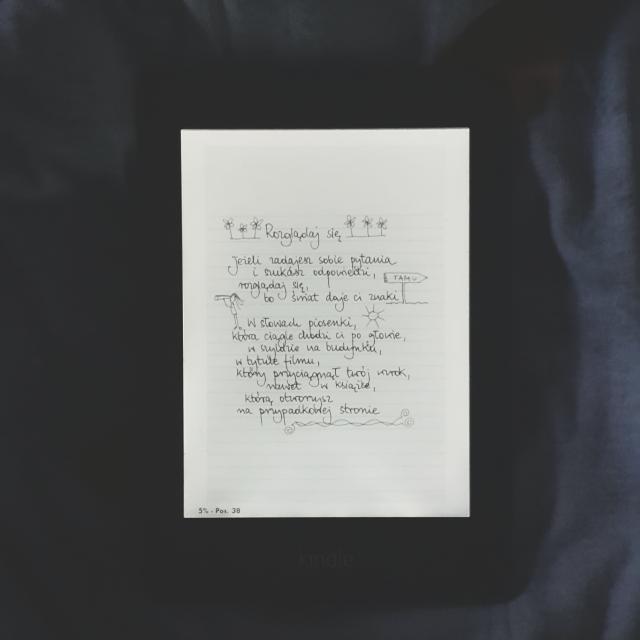 Rozglądaj się
Jeżeli zadajesz sobie pytania
i szukasz odpowiedzi,
TAM
rozglądaj się,
bo świat daje ci znaki
W słowach piosenki,
która ciągle chodzi ci po głowie,
w szyldzie na budynku,
w tytule filmu,
który przyciągnął twój wzrok,
nawet w książce,
którą otworzysz
na przypadkowej stronie
5% - Pos. 38
kindle